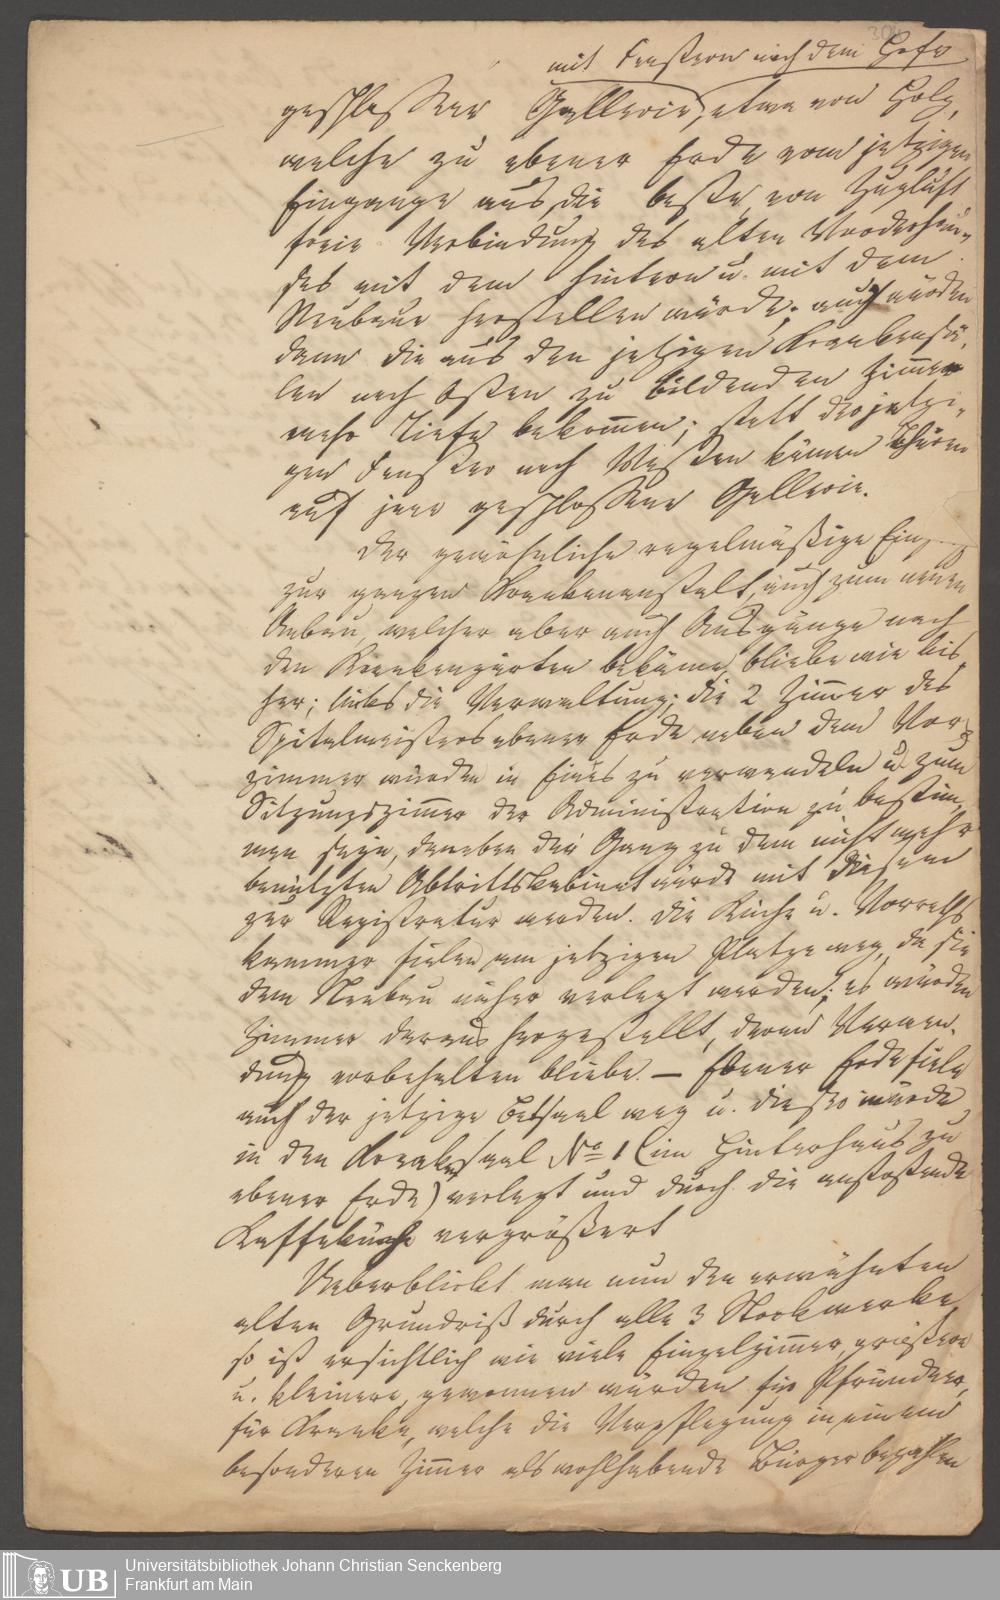 mit Fenstern nach dem Hofe
geschlossener Gallerie, etwa von Holz,
welche zu ebener Erde vom jetzigen
Eingange aus, die beste, von Zugluft
freie Verbindung des alten Vorderhau-
ses mit dem hintern u. mit dem
Neubaue herstellen würde; auch würden
dann die aus den jetzigen Krankensä-
len nach Osten zu bildenden Zimmer
mehr Tiefe bekommen; statt der jetzi-
gen Fenster nach Westen kämen Thüren
auf jene geschlossene Gallerie.
Der gewöhnliche regelmäßige Eingang
zur ganzen Krankenanstalt, auch zum neuen
Anbau, welcher aber auch Ausgänge nach
den Krankengärten bekäme, bliebe wie bis-
her; links die Verwaltung; die 2 Zimmer des
Spitalmeisters ebener Erde neben dem Vor-
zimmer würden in Eines zu verwandeln u. zum
Sitzungszimmer der Administration zu bestim-
men seyn, daneben der Gang zu dem nicht mehr
benutzten Abtrittskabinet würde mit diesem
zur Registratur werden. Die Küche u. Vorraths
kammer fielen am jetzigen Platze weg, da sie
dem Neubau näher verlegt werden; es würden
Zimmer daraus hergestellt, deren Verwen-
dung vorbehalten bliebe. — Ebener Erde fiele
auch der jetzige Betsaal weg u. dieser würde
in den Krankensaal No 1 (im Hinterhaus zu
ebener Erde) verlegt und durch die anstoßende
Kaffeküche vergrößert
Ueberblickt man nun den erwähnten
alten Grundriß durch alle 3 Stockwerke,
so ist ersichtlich wie viele Einzelzimmer, größere
u. kleinere, gewonnen würden für Pfründner,
für Kranke, welche die Verpflegung in einem
besonderen Zimmer als wohlhabende Bürger bezahlen
UB
Universitätsbibliothek Johann Christian Senckenberg
Frankfurt am Main